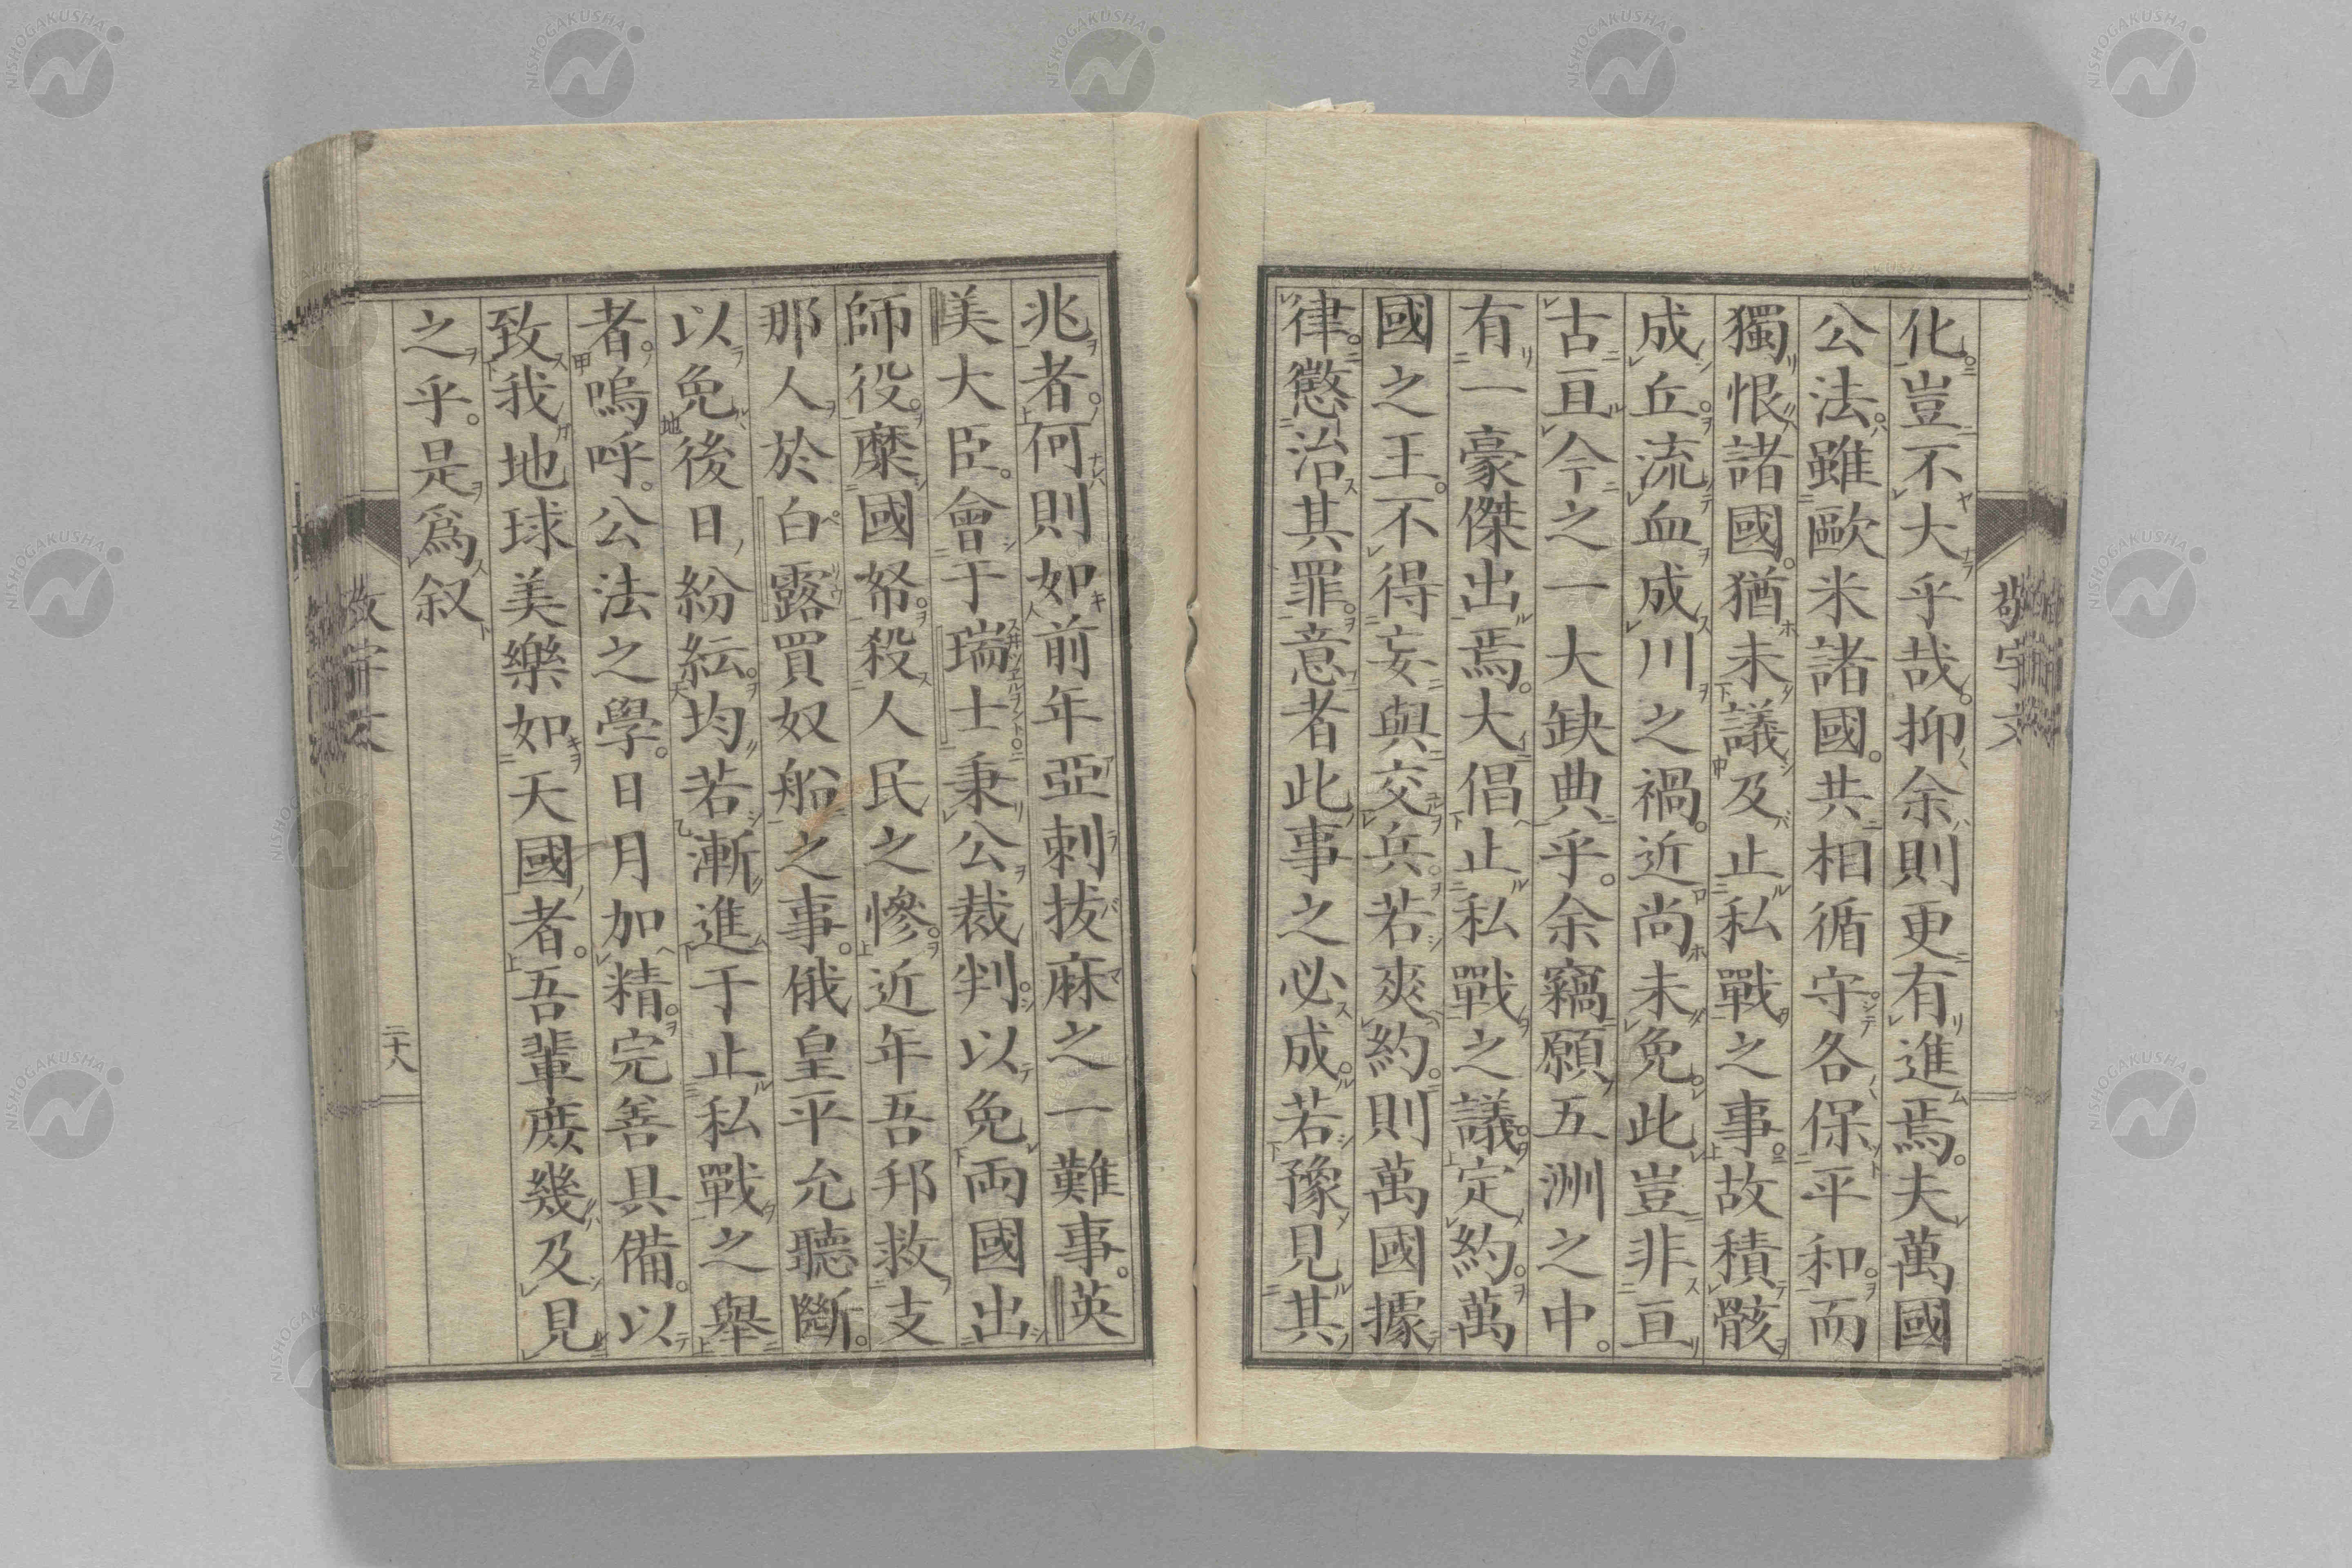 化。豈不大乎哉。抑余則更有進焉。夫萬國
公法。雖歐米諸國。共相循守。各保平和。而
獨恨諸國。猶未議及止私戰之事。故積骸
成丘。流血成川之禍。近尚未免。此豈非亘
古亘今之一大缺典乎。余竊願五洲之中。
有一豪傑出焉。大倡止私戰之議。定約。萬
國之王。不得妄與交兵。若爽約。則萬國據
律。懲治其罪。意者此事之必成。若豫見其
兆者。何則如前年亞刺拔麻之一難事。英
美大臣。會于瑞士。秉公裁判。以免兩國出
師役。糜國帑。殺人民之慘。近年吾邦救支
那人於白露買奴船之事。俄皇平允聽斷。
以免後日紛紜。均若漸進于止私戰之舉
者。嗚呼。公法之學。日月加精。完善具備。以
致我地球美樂如天國者。吾輩庶幾及見
之乎。是爲叙
二十八
敬宇文
NISHOGAKUSHA